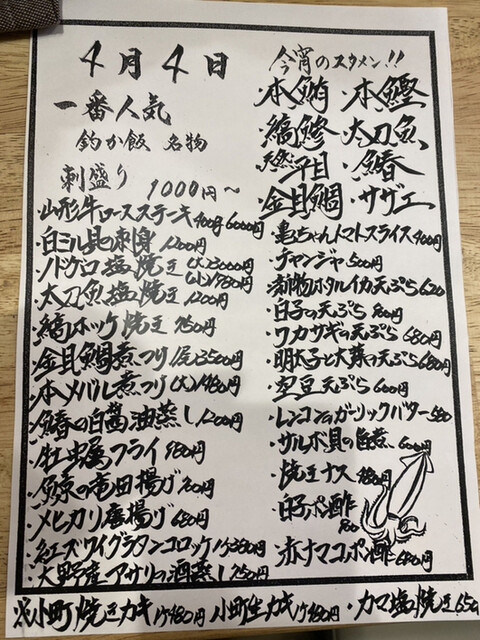 4月4日
一番人気
釣か飯 名物
刺盛り 1000円～
・山形牛ロースステーキ 400g 6000円
・白ミル貝の刺身 1200円
・ノドグロ塩焼き (大)3000円 (小)1980円
・太刀魚塩焼き 1200円
・縞ホッケ焼き 950円
・金目鯛煮つけ 1尾3500円
・本メバル煮つけ(大)1980円
・鰆の白醤油蒸し 1200円
・牡蠣フライ 980円
・鯨の竜田揚げ
・メヒカリ唐揚げ 680円
・紅ズワイグラタンコロッケ 1ケ380円
・大野産アサリの酒蒸し 750円
今宵のスタメン!!
・本鮪 ・本鰹
・縞鯵 ・太刀魚
・天然平目 ・鰆
・金目鯛 ・サザエ
・亀ちゃんトマトスライス 400円
・チャンジャ 500円
・初物ホタルイカ天ぷら 620
・白子の天ぷら 800円
・ワカサギの天ぷら 680円
・明太子と大葉の天ぷら 680円
・空豆天ぷら 600円
・レンコンのガーリックバター 580
・サルボ貝の旨煮 600円
・焼きナス 480円
・白子ポン酢
・赤ナマコポン酢 680円
※小町焼きカキ 1ケ480円 小町生カキ 1ケ480円 ・カマ塩焼き 650